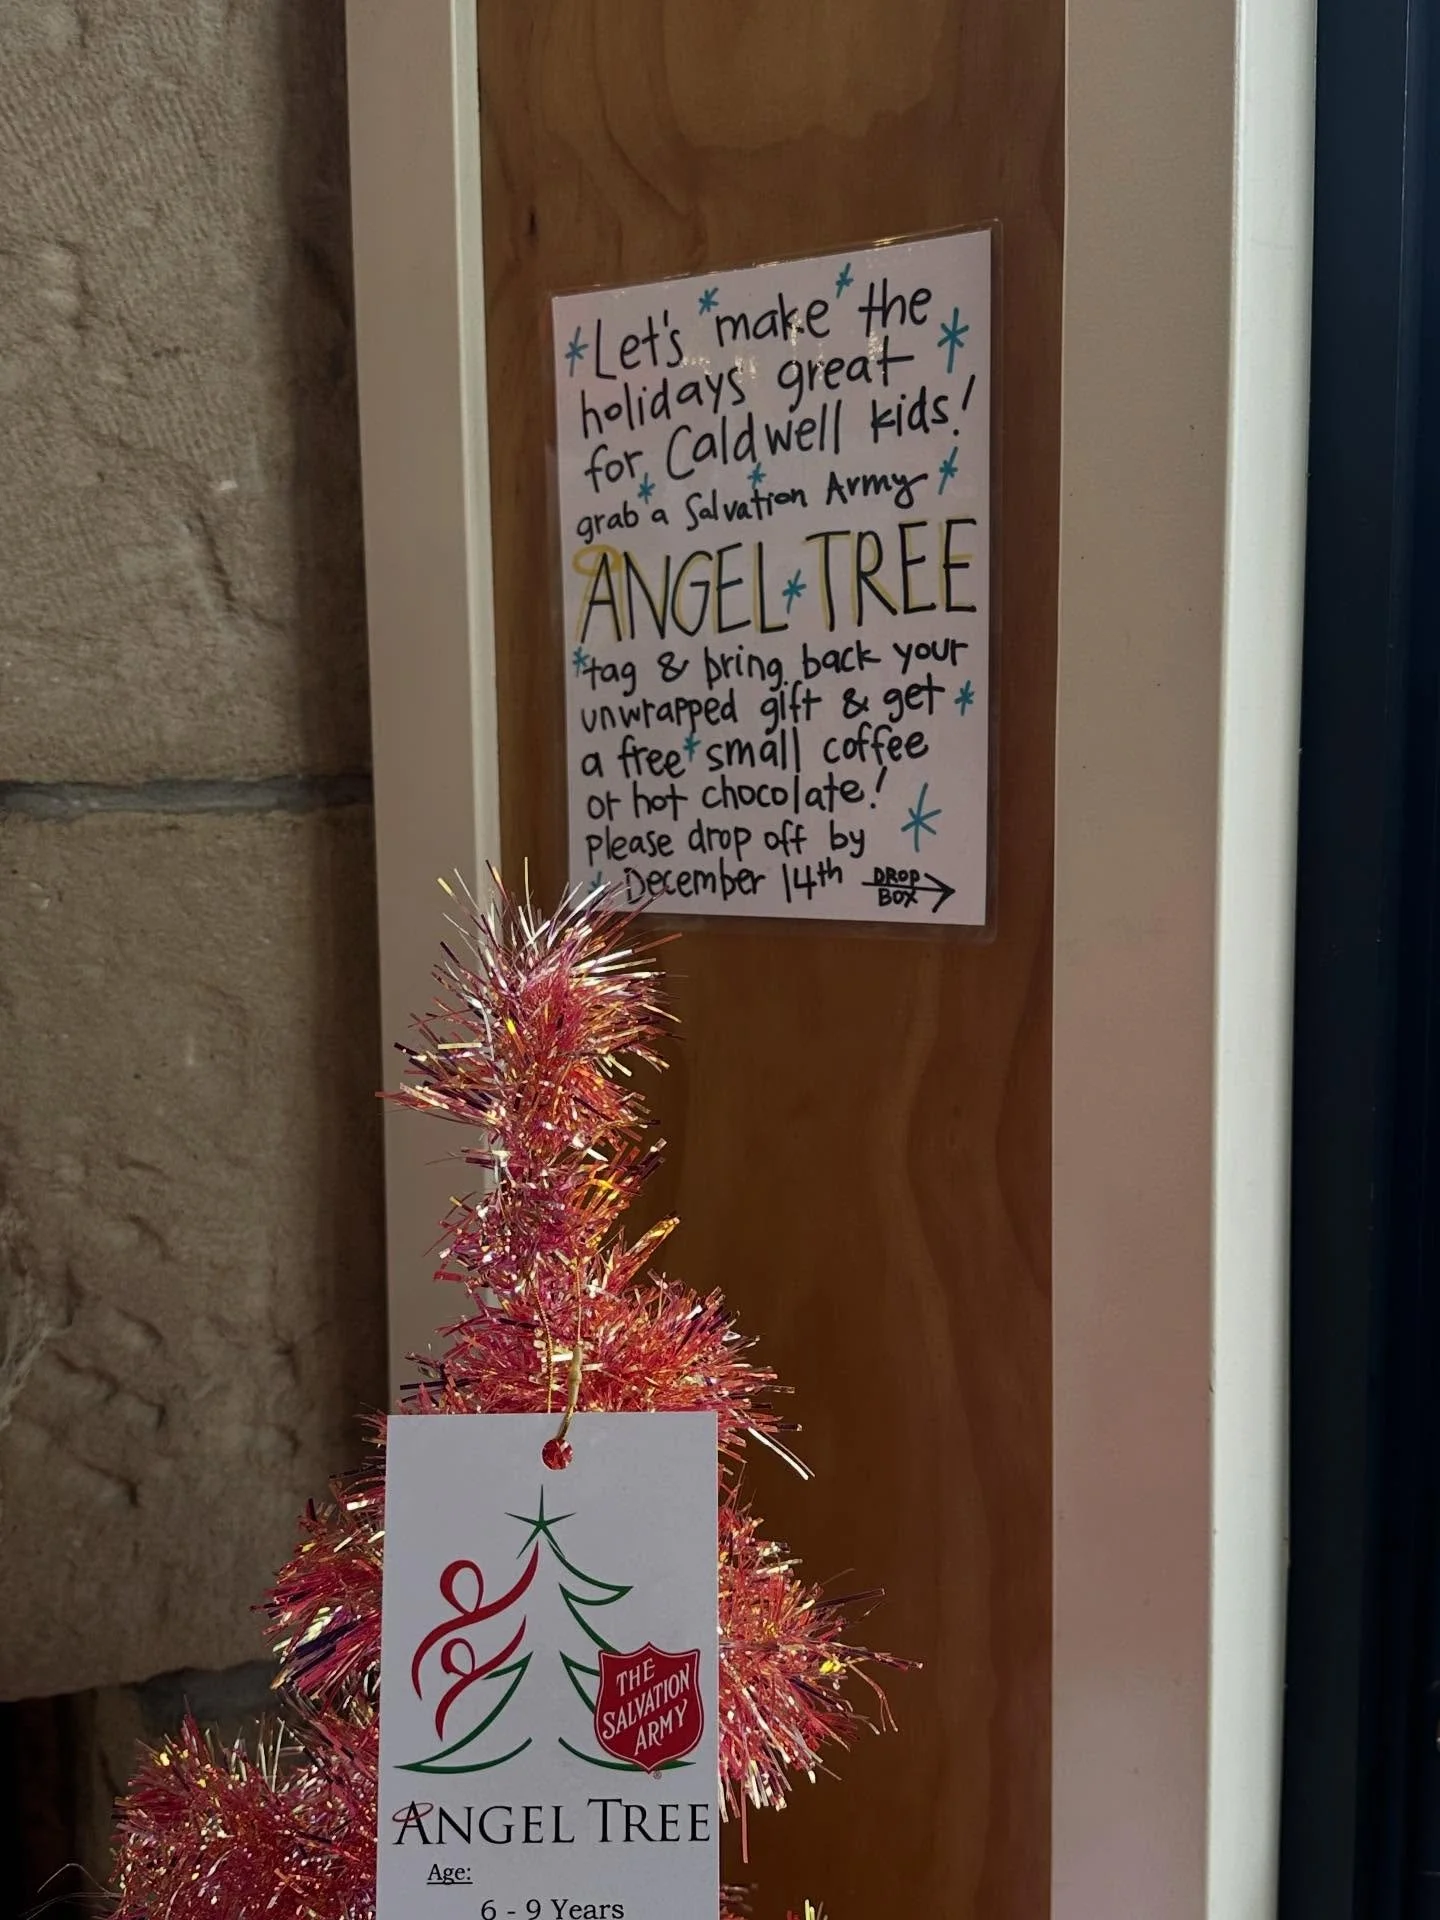 Let's make the
holidays great
for Caldwell kids!
grab a Salvation Army
ANGEL TREE
tag & bring back your
unwrapped gift & get
a free small coffee
or hot chocolate!
Please drop off by
December 14th
DROP
BOX
THE
SALVATION
ARMY
®
ANGEL TREE
Age:
6 - 9 Years